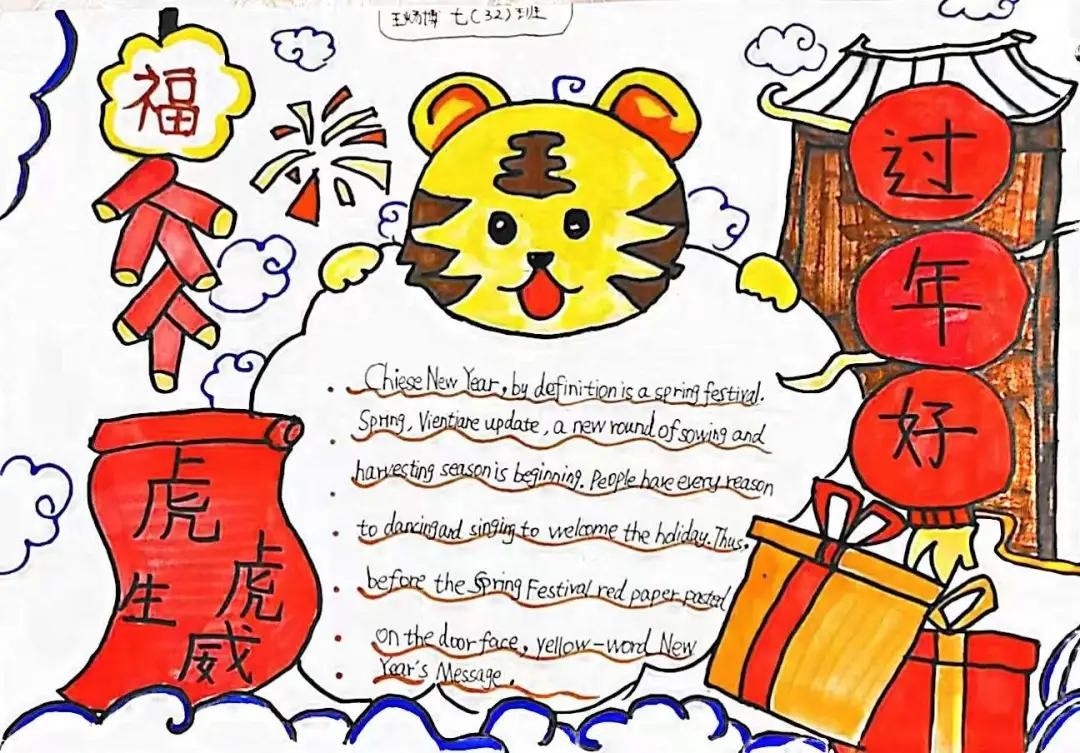 七(32)班
福
过
年
好
Chiese New Year, by definition is a spring festival.
Spring, Vientiane update, a new round of sowing and
harvesting season is beginning. People have every reason
to dancing and singing to welcome the holiday. Thus,
before the Spring Festival red paper pasted
on the door face, yellow-word New
Year's Message.
虎
虎
生
威